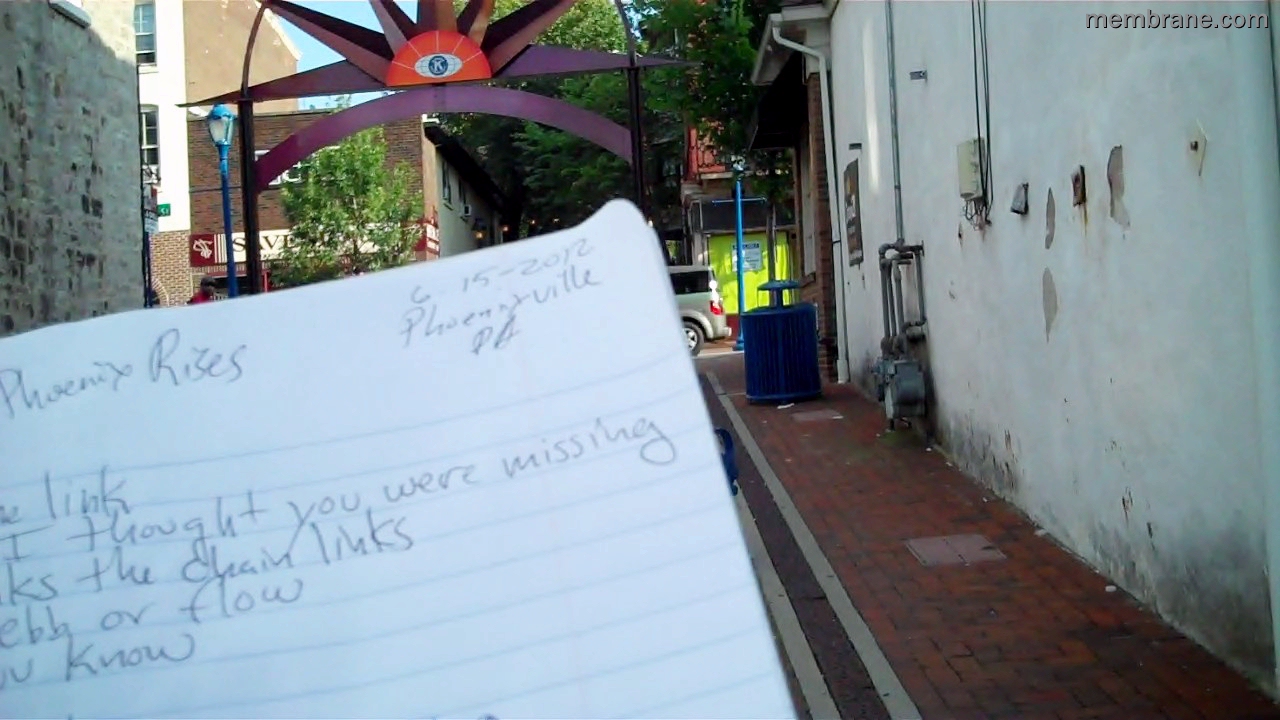 membrane.com
K
SAVE
6-15-2012
Phoenixville
PA
Phoenix Rises
link
I thought you were missing
the chain links
ebb or flow
you know